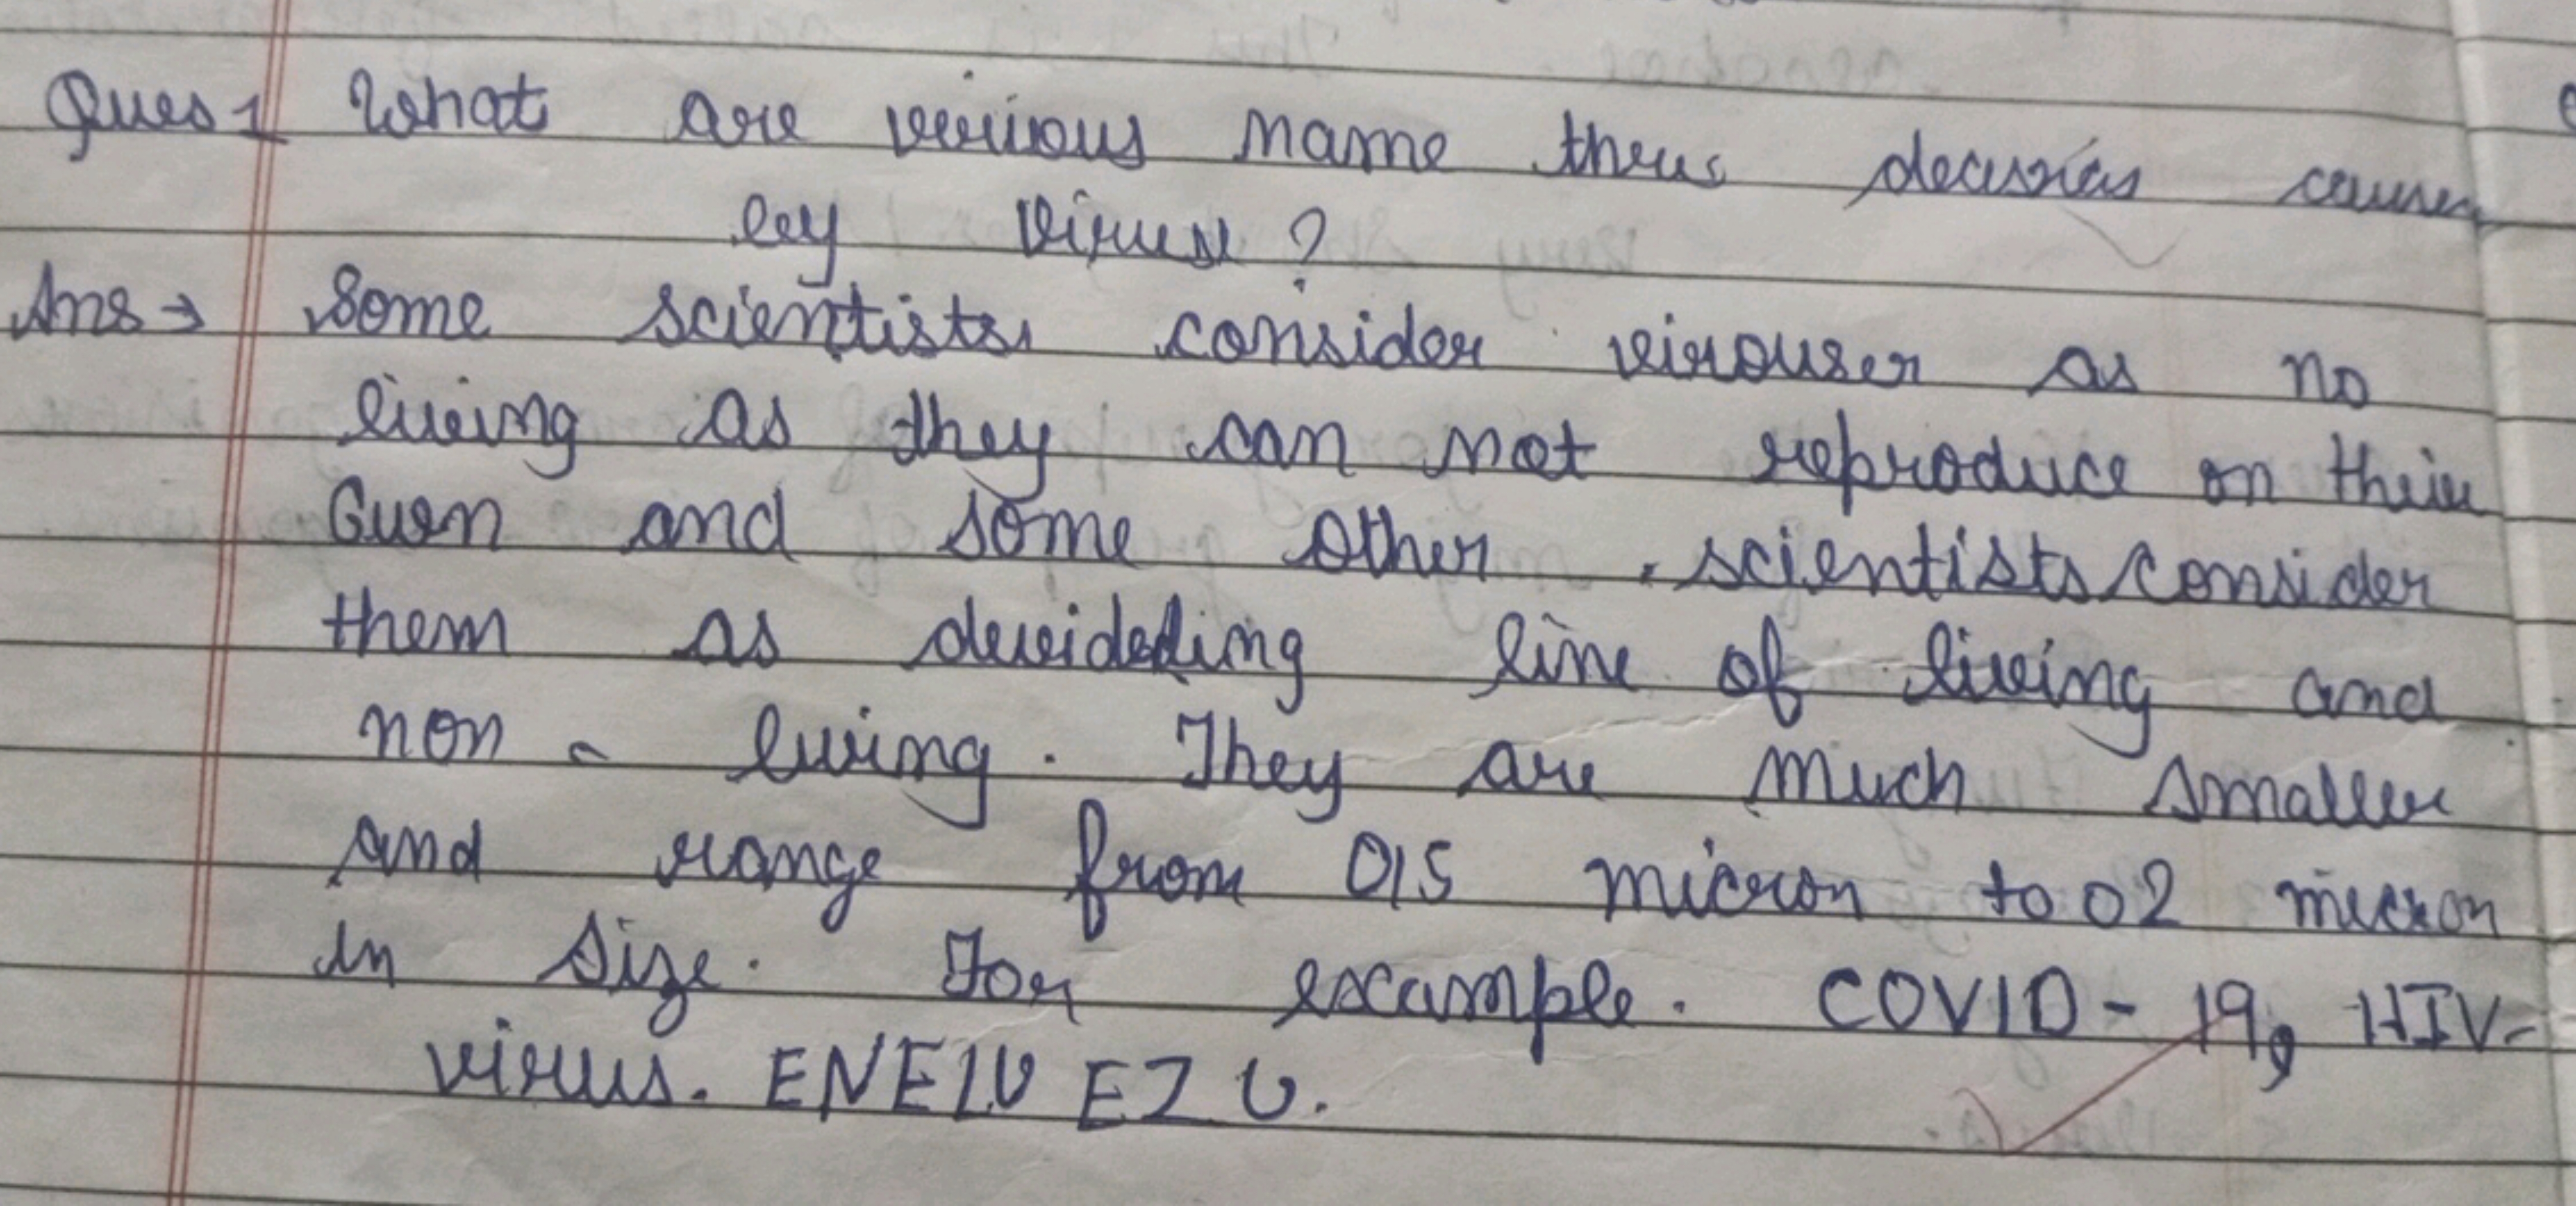 Ques 1 What are verious name three decisies causes
by viruse ?
Ans → Some scientists consider virouser as no
living as they can not reproduce on their
Owen and some other scientists consider
them as devideding line of living and
non - living . They are much smaller
and range from 015 micron to 02 micron
in size. For example. COVID - 19, HIV-
virus. ENE1V EZ U.